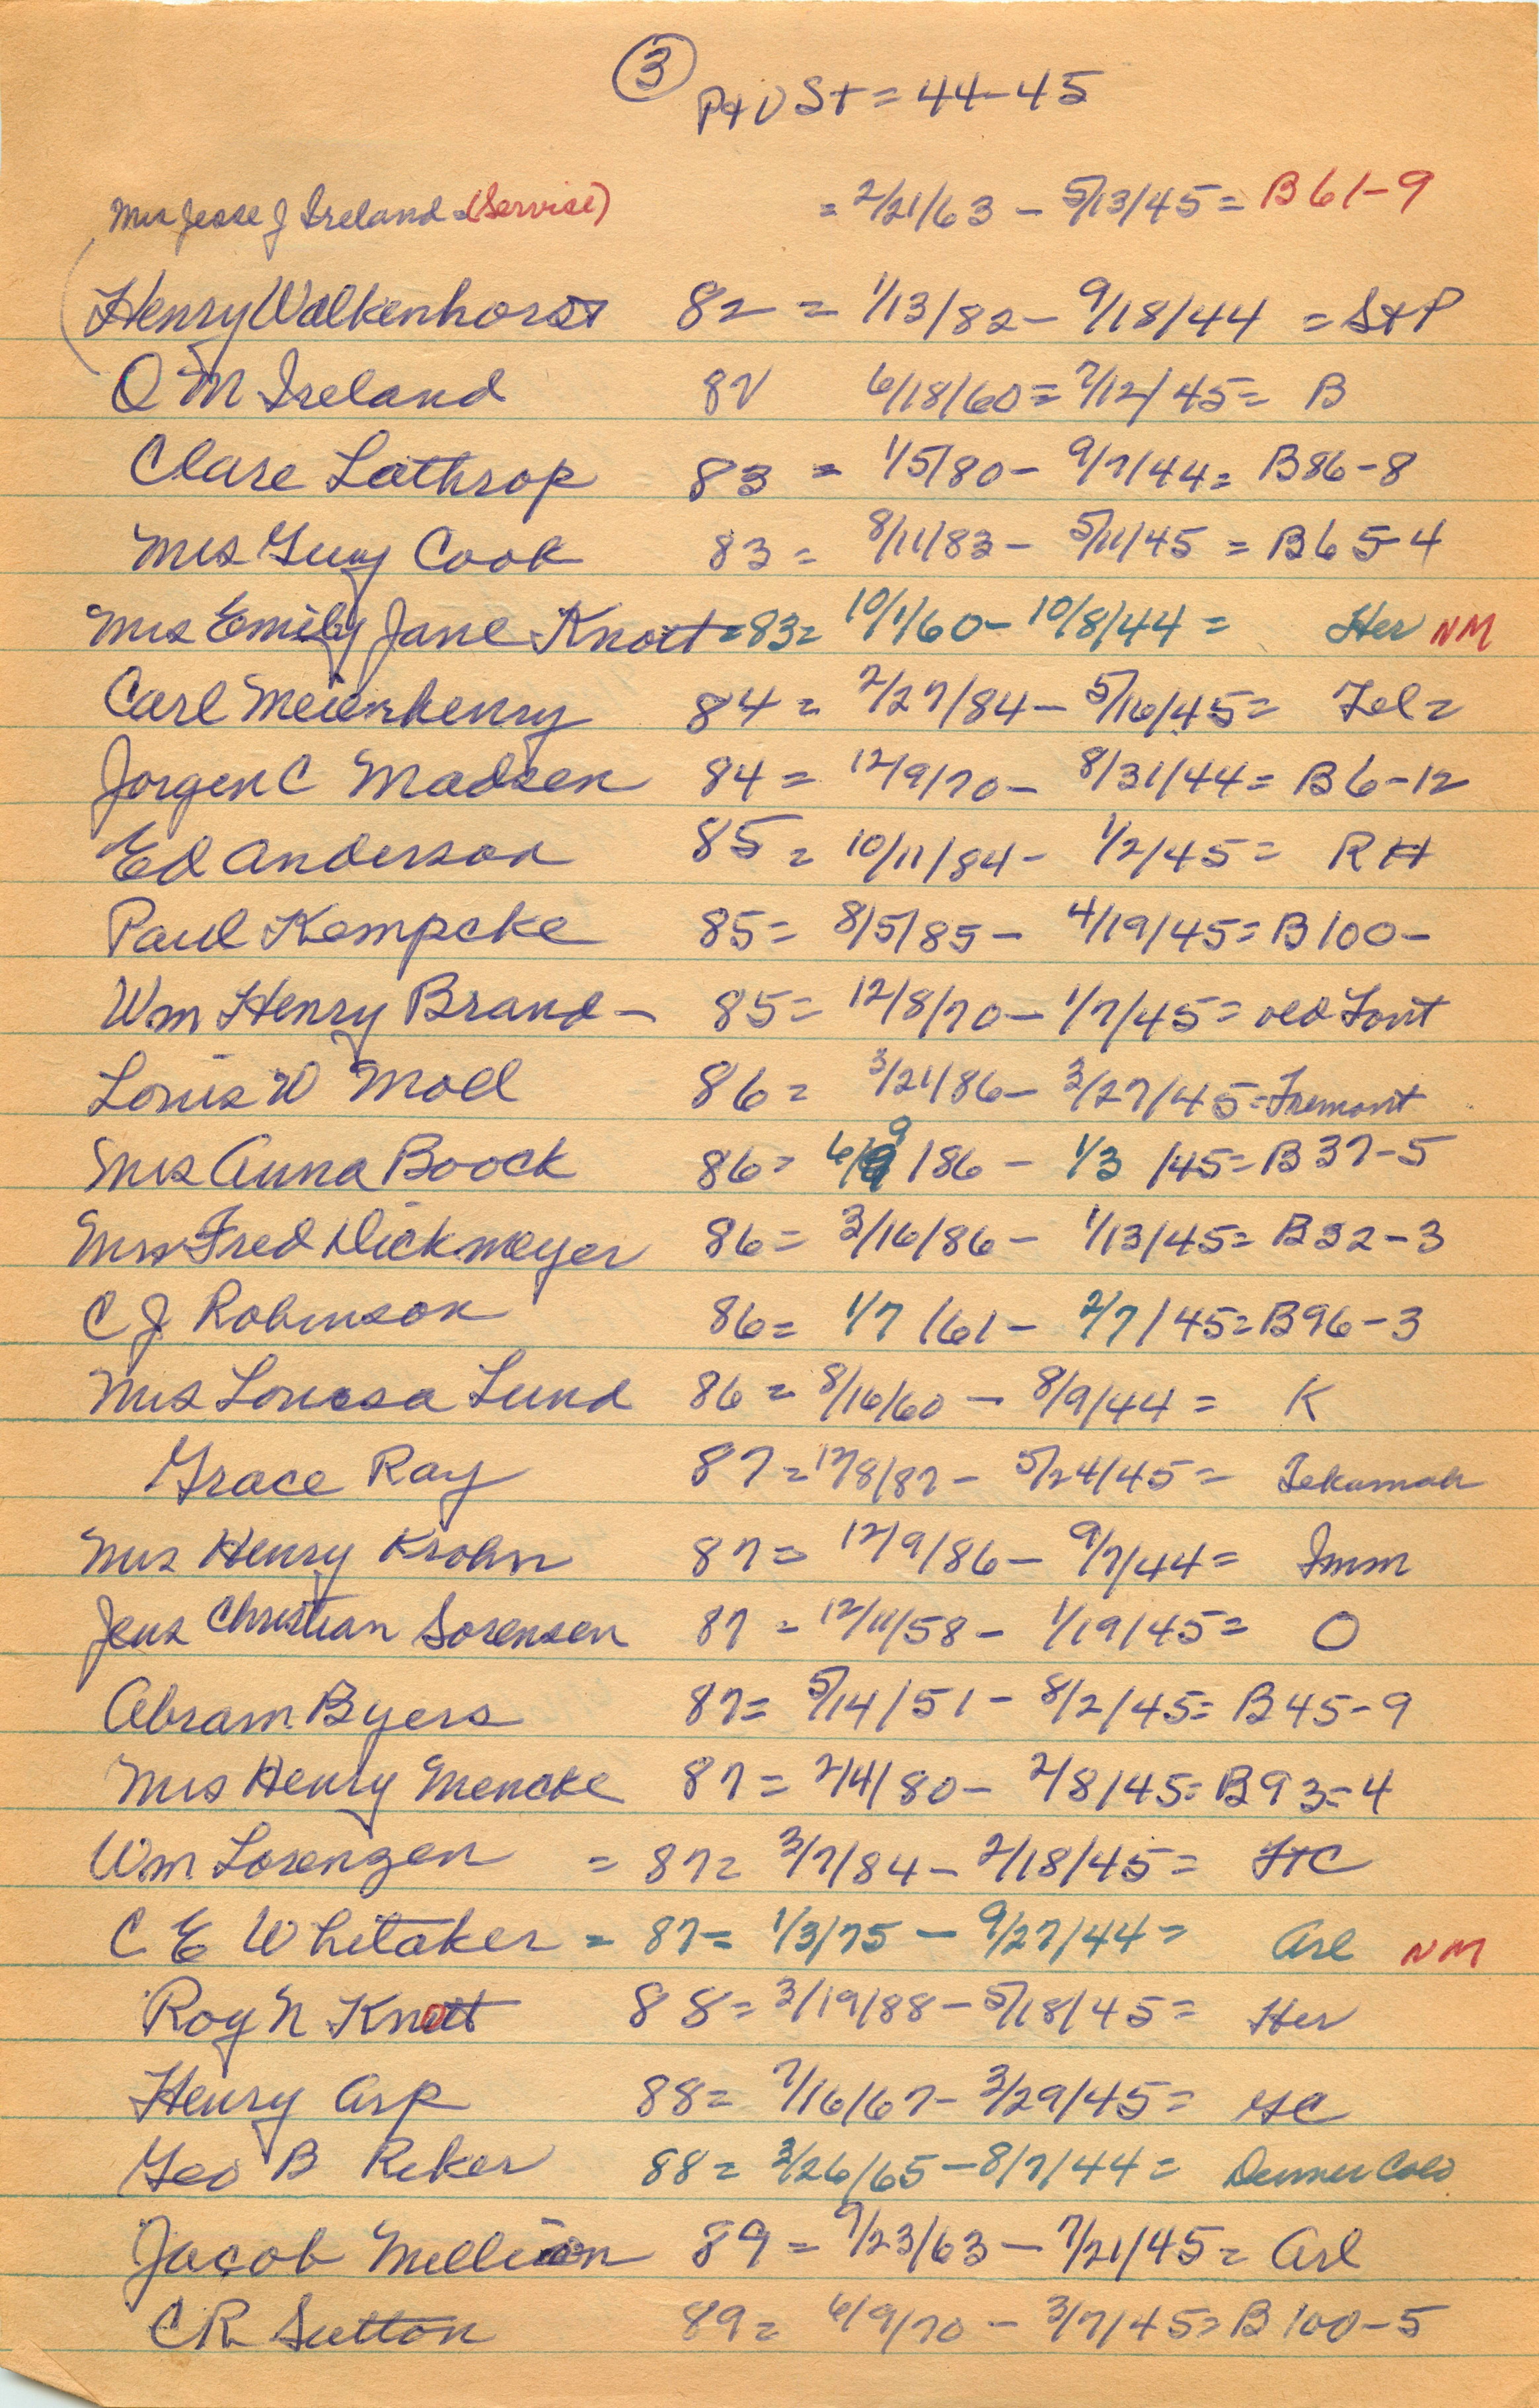 ③ P+V St = 44-45
Mrs Jesse J Ireland = (Service) = 2/21/63 - 5/13/45 = B61-9
Henry Walkenhorst 82 = 1/13/82 - 9/18/44 = StP
O M Ireland 82 6/18/60 = 7/12/45 = B
Clare Lathrop 83 = 1/5/80 - 9/7/44 = B86-8
Mrs Guy Cook 83 = 8/11/83 - 5/11/45 = B65-4
Mrs Emily Jane Knott = 83 = 10/1/60 - 10/8/44 = Her NM
Carl Meierhenry 84 = 2/27/84 - 5/16/45 = Tel =
Jorgen C Madsen 84 = 12/9/70 - 8/31/44 = B6-12
Ed Anderson 85 = 10/11/84 - 1/2/45 = RH
Paul Kempcke 85 = 8/5/85 - 4/19/45 = B100-
Wm Henry Brand - 85 = 12/8/70 - 1/7/45 = old Font
Louis W Moll 86 = 3/21/86 - 3/27/45 = Fremont
Mrs Anna Boock 86 = 6/9/86 - 1/3/45 = B37-5
Mrs Fred Dickmeyer 86 = 3/16/86 - 1/13/45 = B32-3
C J Robinson 86 = 1/7/61 - 2/7/45 = B96-3
Mrs Louisa Lund 86 = 8/16/60 - 8/9/44 = K
Grace Ray 87 = 12/8/87 - 5/24/45 = Tekamah
Mrs Henry Krohn 87 = 12/9/86 - 9/7/44 = Imm
Jens Christian Sorensen 87 = 12/11/58 - 1/19/45 = O
Abram Byers 87 = 5/14/51 - 8/2/45 = B45-9
Mrs Henry Mencke 87 = 2/4/80 - 2/8/45 = B93-4
Wm Lorenzen = 87 = 3/7/84 - 2/18/45 = FtC
C E Whitaker = 87 = 1/3/75 - 9/27/44 = Arl NM
Roy N Knott 88 = 3/19/88 - 5/18/45 = Her
Henry Arp 88 = 7/16/67 - 3/29/45 = GC
Geo B Reker 88 = 3/26/65 - 8/7/44 = Denver Colo
Jacob Million 89 = 9/23/63 - 7/21/45 = Arl
C R Sutton 89 = 6/9/70 - 3/7/45 = B100-5